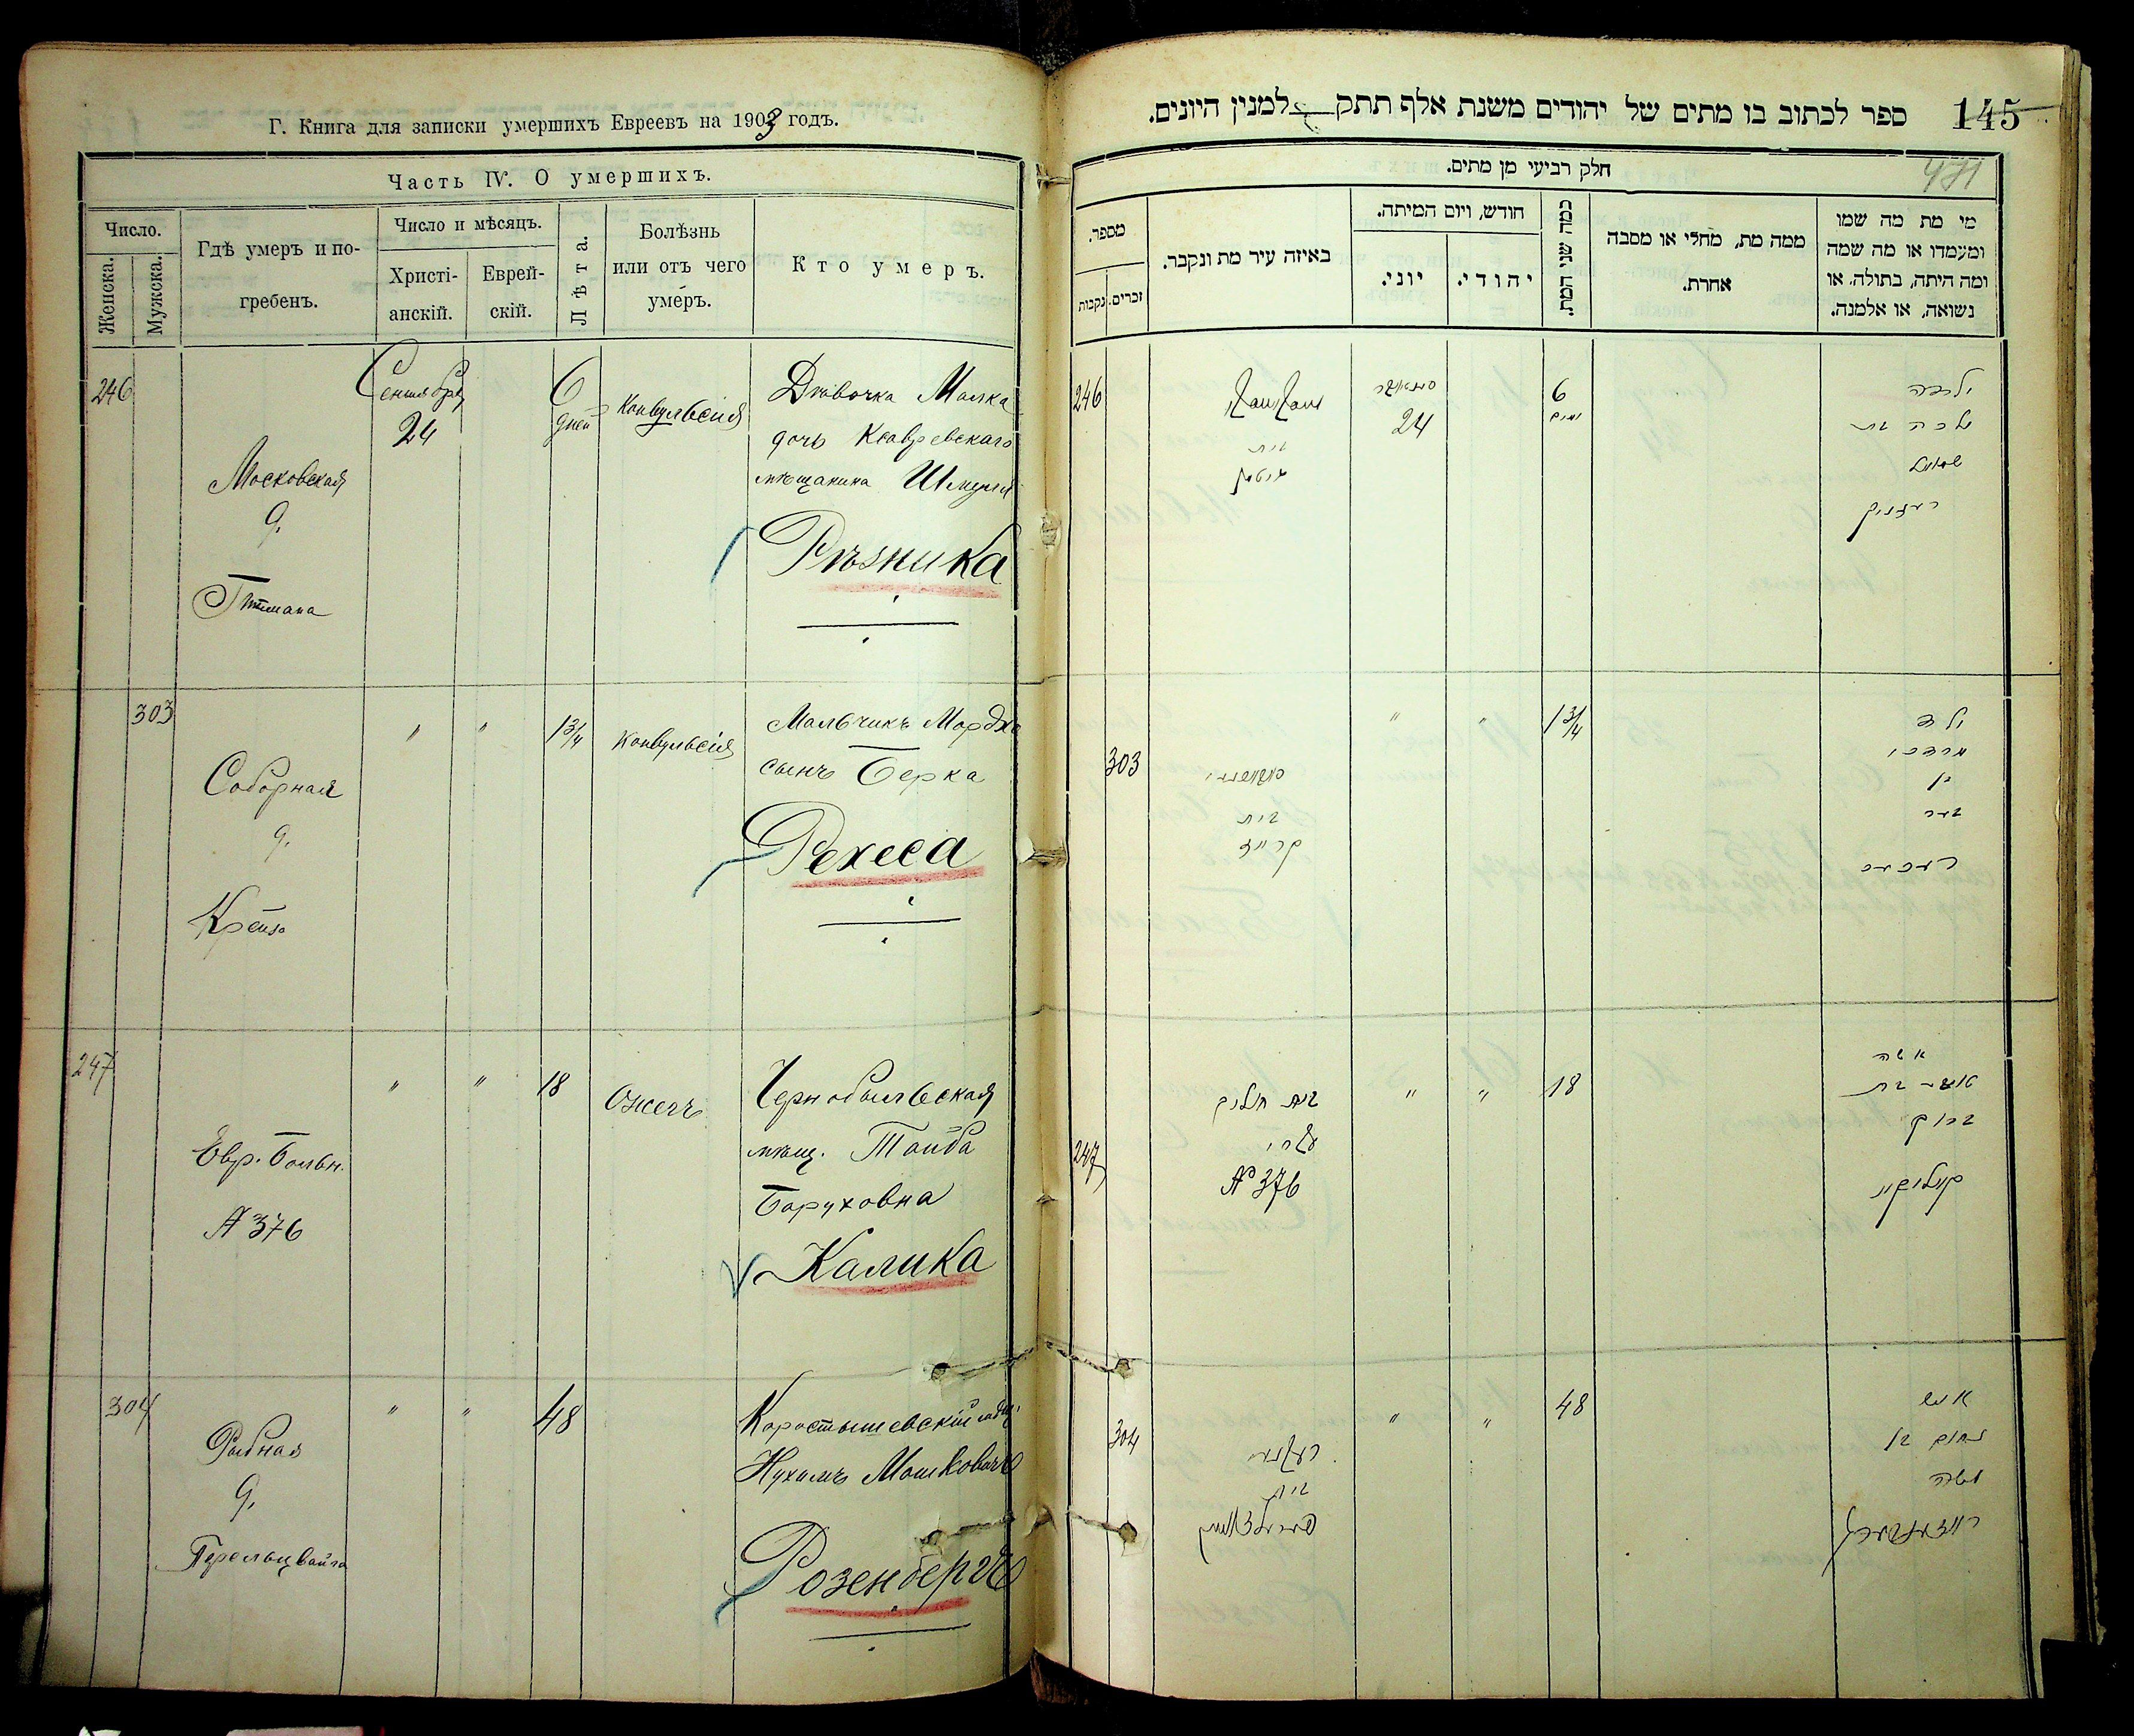 Г. Книга для записки умершихъ Евреевъ на 1903 годъ.
Часть IV. О умершихъ.
Число.
Женска.
Мужска.
Гдѣ умеръ и по-
гребенъ.
Число и мѣсяцъ.
Христі-
анскій.
Еврей-
скій.
Лѣта.
Болѣзнь
или отъ чего
умеръ.
Кто умеръ.
246
Московская
д.
Сентября
24
6
дней
Конвульсія
Дѣвочка Малка
дочь
мѣщанина Шмуля
Рѣзника
303
Соборная
д.
" "
1 3/4
Конвульсія
Мальчикъ Мордко
сынъ Берка
Рехеса
247
Евр. Больн.
№ 376
" "
18
Ожегъ
Чернобыльская
мѣщ. Тайба
Боруховна
Калика
304
Рыбная
д.
Перельцвайга
" "
48
Коростышевскій мѣщ.
Нухимъ Мошковичъ
Розенбергъ
145
ספר לכתוב בו מתים של יהודים משנת אלף תתק למנין היונים.
471
חלק רביעי מן מתים.
מספר.
זכרים.
נקבות
באיזה עיר מת ונקבר.
חודש, ויום המיתה.
יוני.
יהודי.
כמה שני המת.
ממה מת, מחלי או מסבה
אחרת.
מי מת מה שמו
ומעמדו או מה שמה
ומה היתה, בתולה, או
נשואה, או אלמנה.
246
בית
24
6
ימים
ילדה
מלכה בת
שמואל
רעזניק
303
בית
קרייז
" "
1 3/4
ילד
מרדכי
בן
בער
רעכעס
247
בית חולים
עברי
№ 376
" "
18
אשה
טויבא בת
ברוך
קאליקא
304
בית
פערעלצווייג
" "
48
איש
נחום בן
משה
ראזענבערג